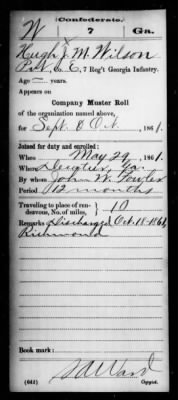 (Confederate.)
W 7 Ga.
Hugh J. M. Wilson
Pvt, Co. E, 7 Reg't Georgia Infantry.
Age years.
Appears on
Company Muster Roll
of the organization named above,
for Sept. & Oct., 1861.
Joined for duty and enrolled:
When May 29, 1861.
Where Ga.
By whom John W. Fowler
Period 12 months
Traveling to place of ren-
dezvous, No. of miles, 10
Remarks: Discharged Oct. 18-1861,
Richmond
Book mark:
(642) Copyist.